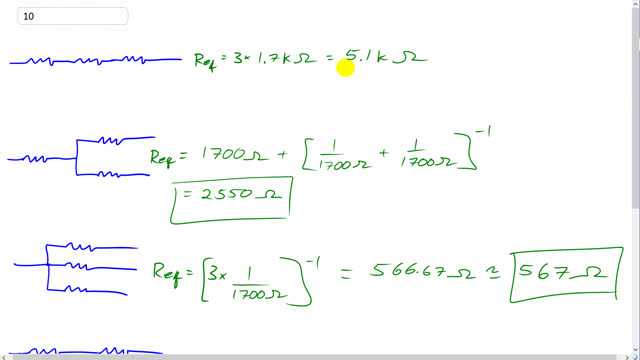 10
Ref = 3 × 1.7 k Ω = 5.1 k Ω
Ref = 1700 Ω + [ 1/1700Ω + 1/1700Ω ]⁻¹
= 2550 Ω
Ref = [ 3 × 1/1700Ω ]⁻¹ = 566.67 Ω ≈ 567 Ω